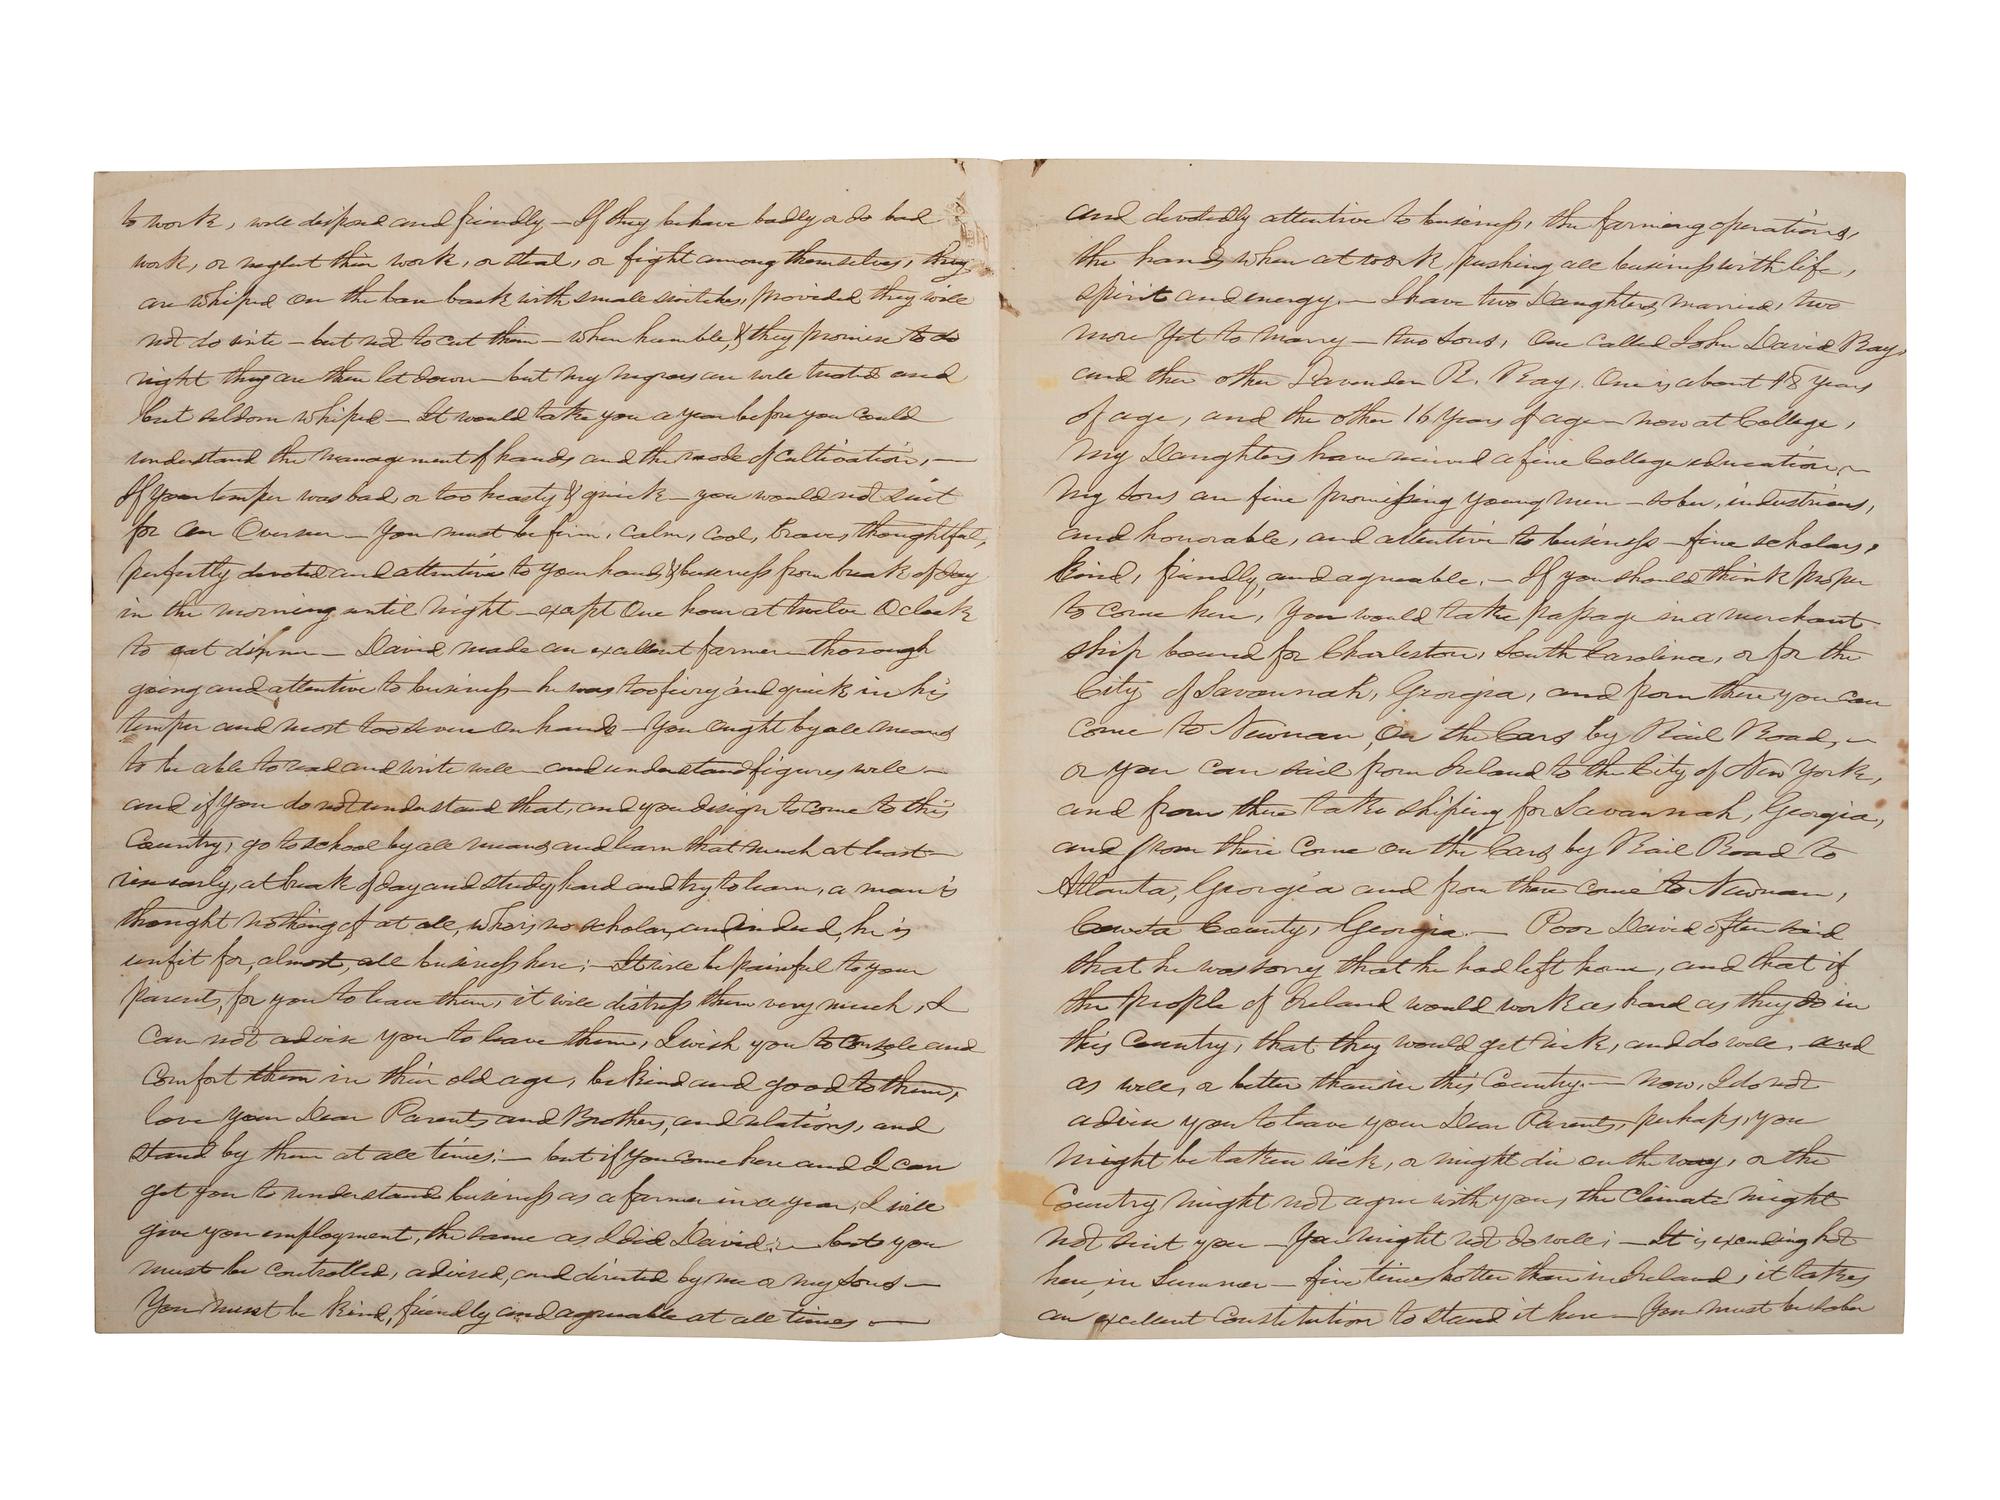 to work, well disposed and friendly — If they behave badly or do bad
work, or neglect their work, or steal, or fight among themselves, they
are whiped on the bare back with small switches, provided they will
not do write — but not to cut them — when humble, & they promise to do
right they are then let down — but my negroes are well treated and
but seldom whiped — It would take you a year before you could
understand the management of hands and the mode of cultivation, —
If your temper was bad, or too hasty & quick — you would not suit
for an Overseer — You must be firm, calm, cool, brave, thoughtful,
perfectly devoted and attentive to your hands & business from break of day
in the morning until night — except One hour at twelve O clock
to eat dinner — David made an excellent farmer — thorough
going and attentive to business — he was too fiery and quick in his
temper and most too severe on hands — You ought by all means
to be able to read and write well — and understand figures well —
and if you do not understand that, and you design to come to this
Country, go to school by all means and learn that much at least —
rise early, at break of day and study hard and try to learn, a man is
thought nothing of at all, who is no scholar, and indeed, he is
unfit for, almost, all business here; — It will be painful to your
parents, for you to leave them, it will distress them very much, I
can not advise you to leave them, I wish you to console and
comfort them in their old age, be kind and good to them,
love your Dear Parents and Brothers, and relations, and
stand by them at all times; — but if you come here and I can
get you to understand business as a farmer in a year, I will
give you employment, the same as I did David; — but you
must be controlled, advised, and directed by me or my sons —
You must be kind, friendly and agreeable at all times —
and devotedly attentive to business, the farming operations,
the hands when at work, pushing all business with life,
spirit and energy. — I have two Daughters married, two
more yet to marry — two sons, One called John David Ray,
and the other Lavender R. Ray, One is about 18 years
of age, and the other 16 years of age — now at College,
My Daughters have recieved a fine College education, —
My sons are fine promissing young men — sober, industrious,
and honorable, and attentive to business — fine scholars,
kind, friendly, and agreeable. — If you should think proper
to come here, you would take passage in a merchant
ship bound for Charleston, South Carolina, or for the
City of Savannah, Georgia, and from there you can
come to Newnan, On the Cars by Rail Road, —
or you can sail from Ireland to the City of New York,
and from there take shiping for Savannah, Georgia,
and from there come on the Cars by Rail Road to
Atlanta, Georgia and from there come to Newnan,
Coweta County, Georgia. — Poor David often said
that he was sorry that he had left home, and that if
the people of Ireland would work as hard as they do in
this Country, that they would get rich, and do well, and
as well, or better than in this Country. — now, I do not
advise you to leave your Dear Parents, perhaps, you
might be taken sick, or might die on the way, or the
Country might not agree with you, the Climate might
not suit you — You might not do well; — It is exceeding hot
here, in Summer — five times hotter than in Ireland, it takes
an excellent Constitution to stand it here — You must be sober